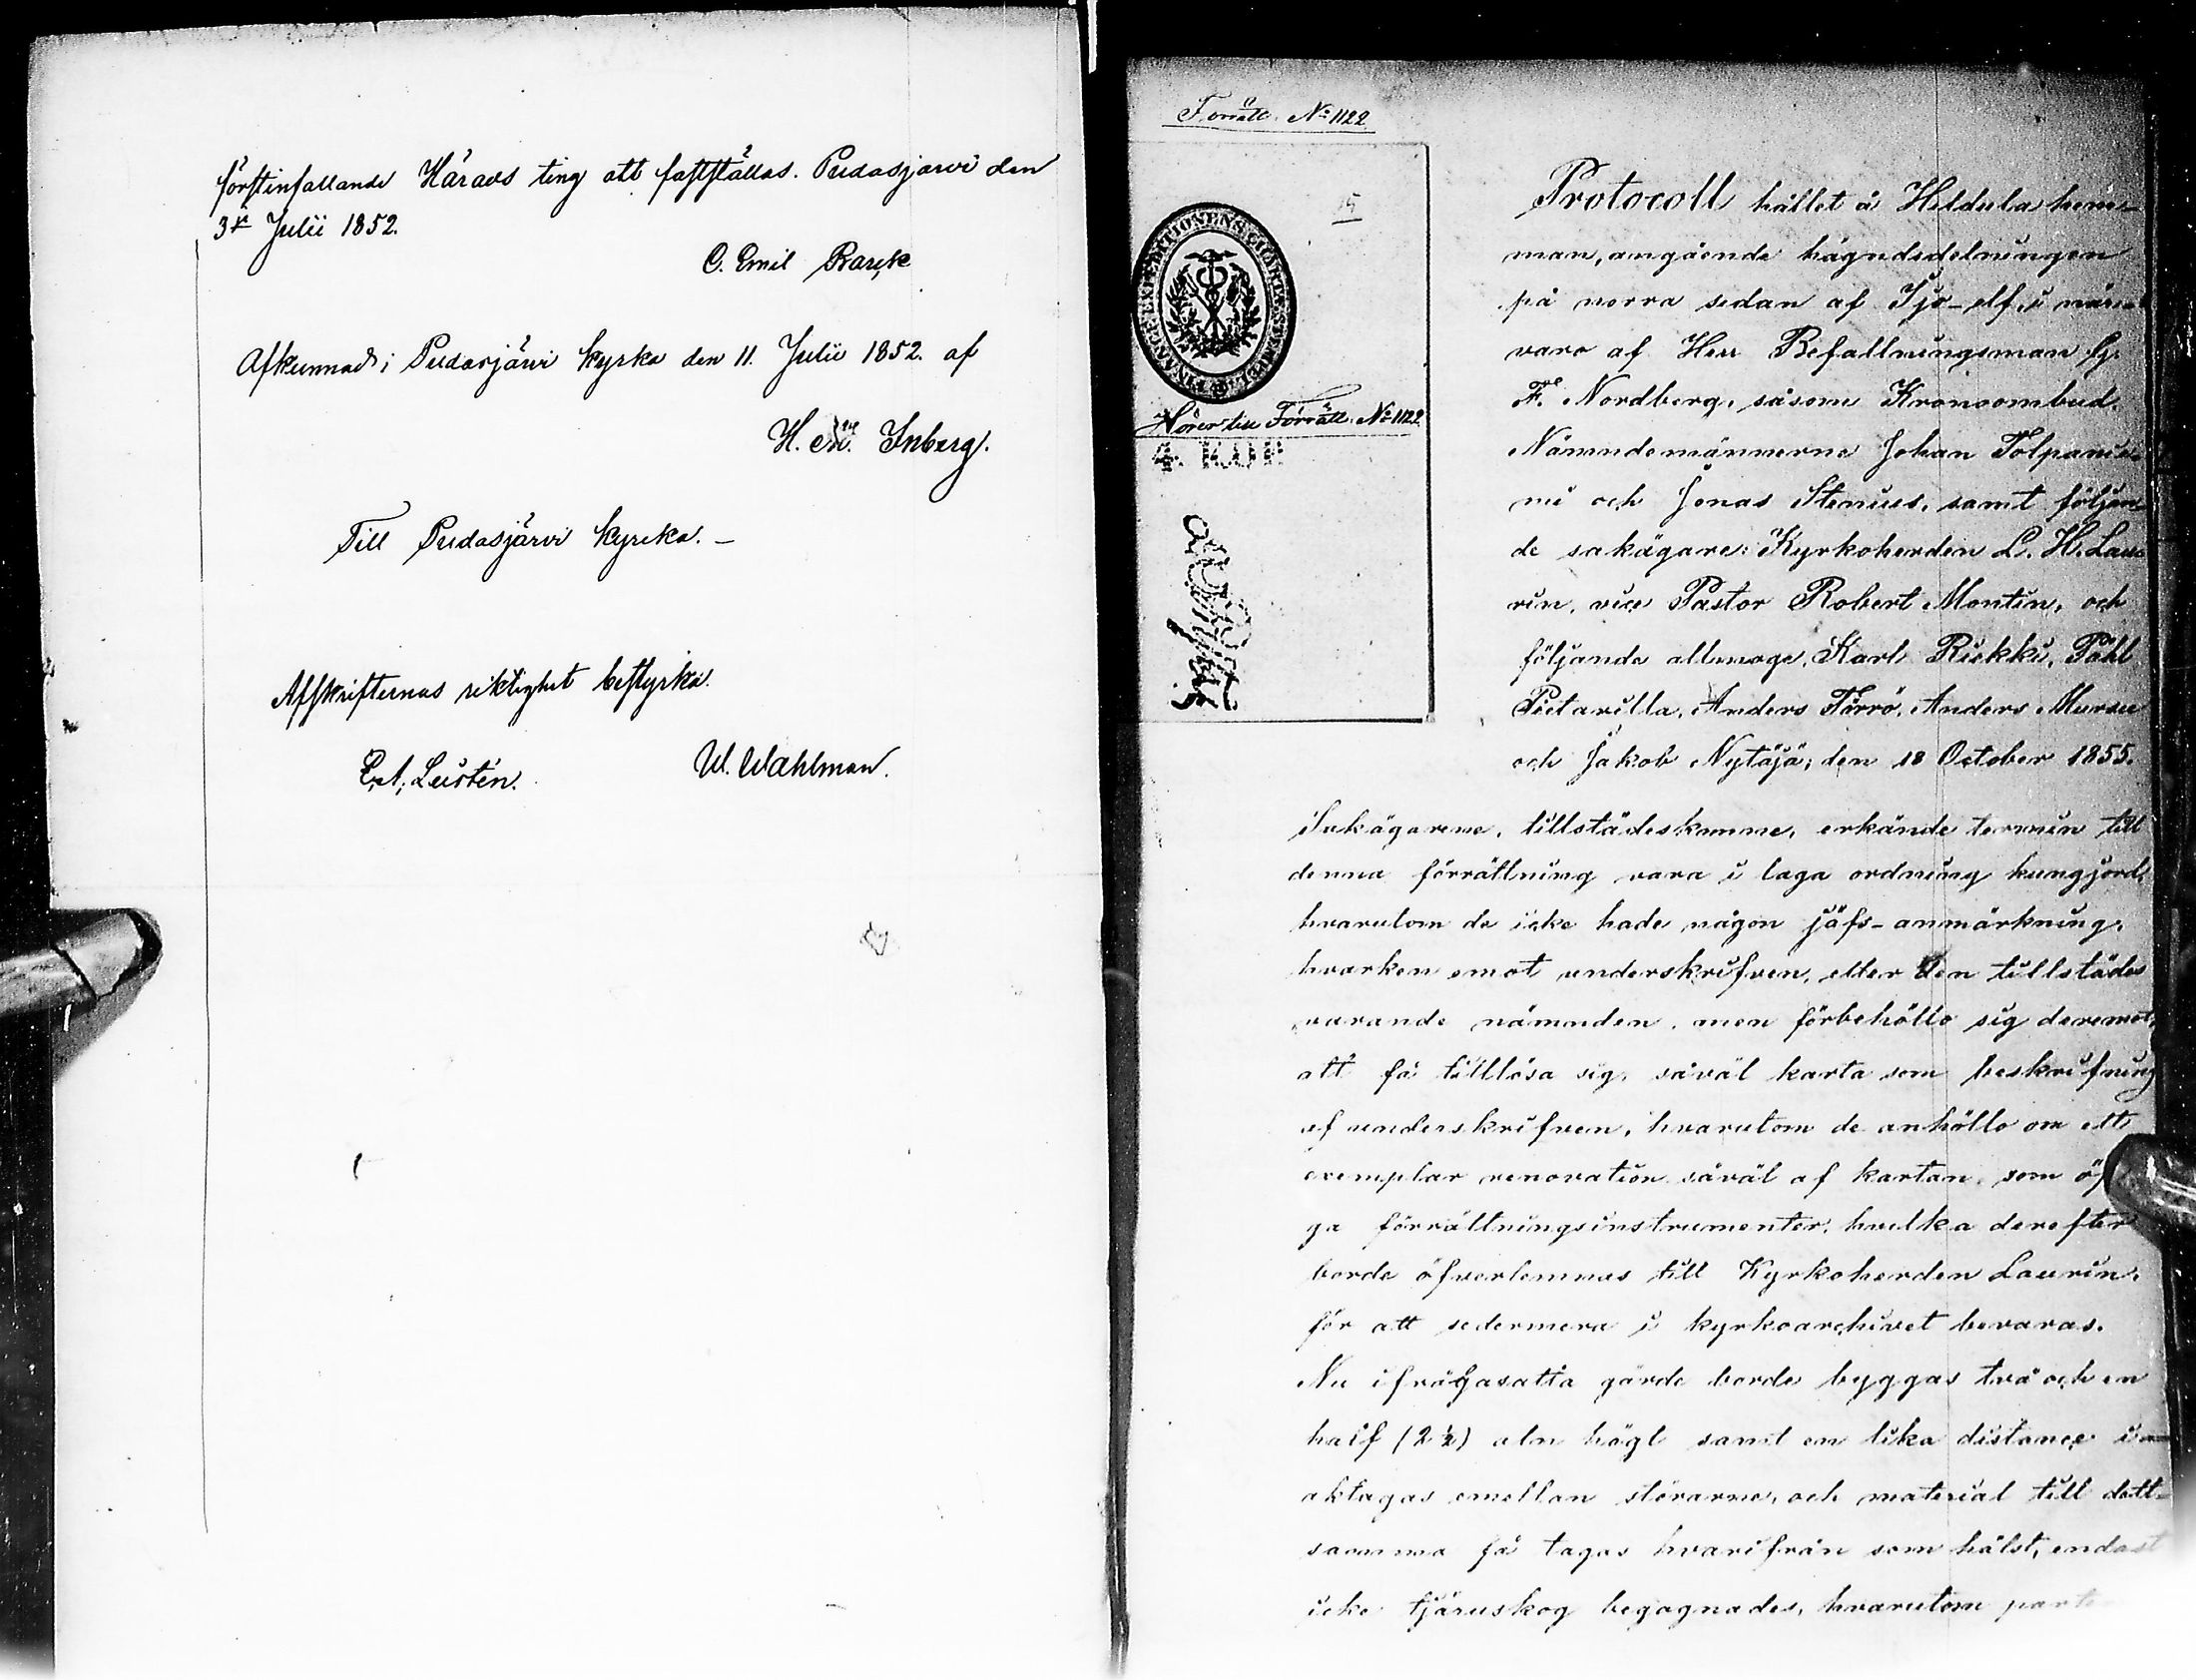 förstinfallande Härads ting att fastställas. Pudasjärvi den
3e Julii 1852.
C. Emil Barck
Afkunnadt i Pudasjärvi kyrka den 11. Julii 1852. af
H. Inberg.
Till Pudasjärvi kyrka. –
Afskrifternas riktighet bestyrka.
W. Wahlman.
Förrätt. No 1122
15
FINANCE EXPEDITIONENS CHARTÆ
Hörer till Förrätt. No 1122
4. KOP.
Protocoll hållet å Hildula hem-
man, angående hägndsdelningen
på norra sidan af Ijo-elf, i närva
varo af Herr Befallningsman G.
F. Nordberg, såsom Kronoombud,
Nämndemännerne Johan Tolpanie-
mi och Jonas Stenius, samt följan-
de sakägare: Kyrkoherden L. H. Lau-
rin, vice Pastor Robert Montin, och
följande allmoge, Karl Riekki, Påhl
Pietarilla, Anders Törrö, Anders Mursu
och Jakob Nytäjä; den 18 October 1855.
Sakägarene, tillstädeskomne, erkände termin till
denna förrättning vara i laga ordning kungjord,
hvarutom de icke hade någon jäfs-anmärkning,
hvarken emot underskrifven, eller den tillstädes
varande nämnden, men förbehöllo sig deremot,
att få tilllösa sig, såväl karta som beskrifning
af underskrifven, hvarutom de anhöllo om ett
exemplar renovation såväl af kartan, som öf
ga förrättningsinstrumenter, hvilka derefter
borde öfverlemnas till Kyrkoherden Laurin,
för att sedermera i kyrkoarchivet bevaras.
Nu ifrågasatta gärde borde byggas två och en
half (2 ½) aln högt samt en lika distance i
akttagas emellan störarne, och material till dett-
samma få tagas hvarifrån som hälst, endast
icke tjäruskog begagnades, hvarutom part